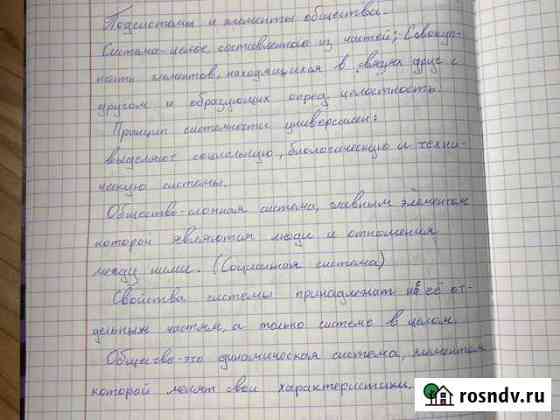 Подсистемы и элементы общества.
Система-целое составленное из частей; Совокуп-
ность элементов, находящихся в связях друг с
другом и образующих опред целостность.
Принцип системности универсален:
выделяют социальную, биологическую и техни-
ческую системы.
Общество-сложная система, главным элементом
которой являются люди и отношения
между ними. (Социальная система)
Свойства системы принадлежат не её от-
дельным частям, а только системе в целом.
Общество-это динамическая система, элементы
которой меняют свои характеристики.
rosndv.ru